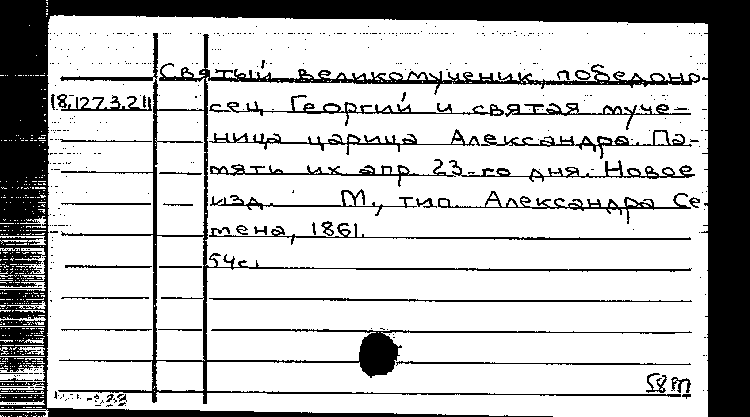 Святый великомученик, победоно-
18.127.3.211 сец Георгий и святая муче-
ница царица Александра. Па-
мять их апр. 23-го дня. Новое
изд. М., тип. Александра Се-
мена, 1861.
54с.
58m